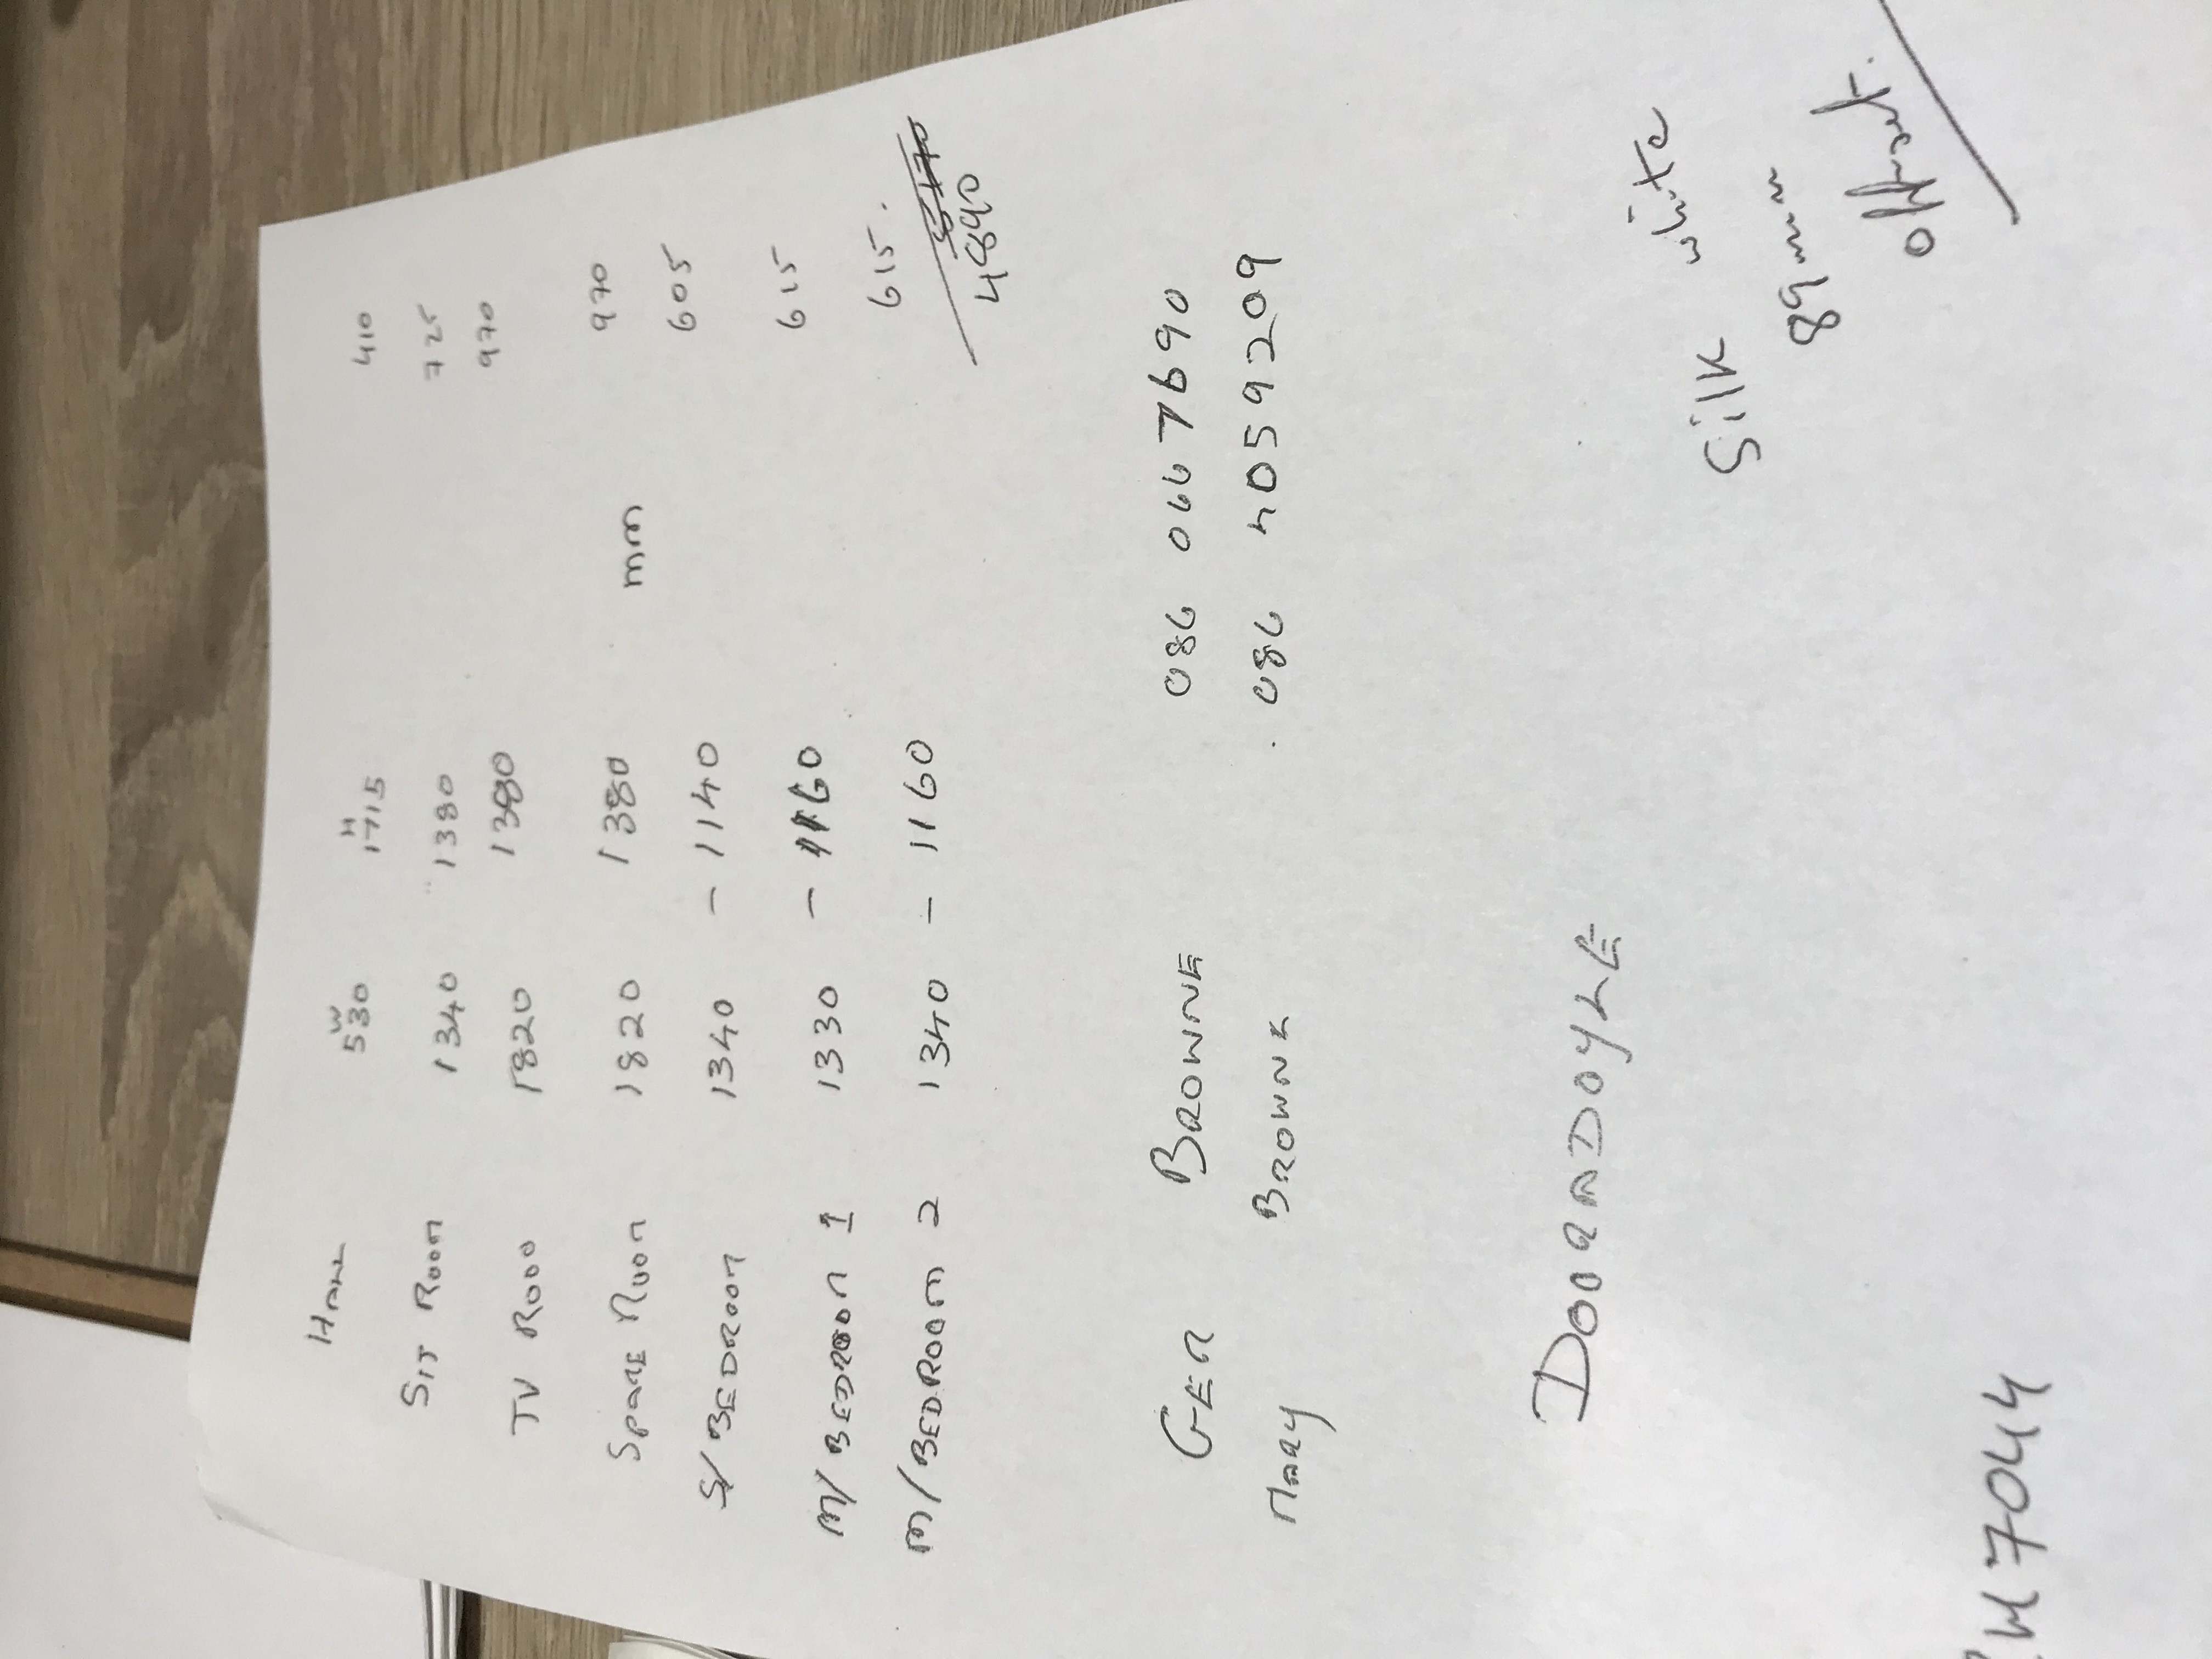 W H
HALL 530 1715 410
SIT ROOM 1340 1380 725
TV ROOO 1820 1380 970
mm
SPARE ROOM 1820 1380 970
S/BEDROOM 1340 - 1140 605
M/BEDROOM 1 1330 - 1160 615
M/BEDROOM 2 1340 - 1160 615.
4890
GER BROWNE 086 0667690
MARY BROWNE . 086 4059209
DOORADOYLE
Silk white
89mm
offset.
W7044